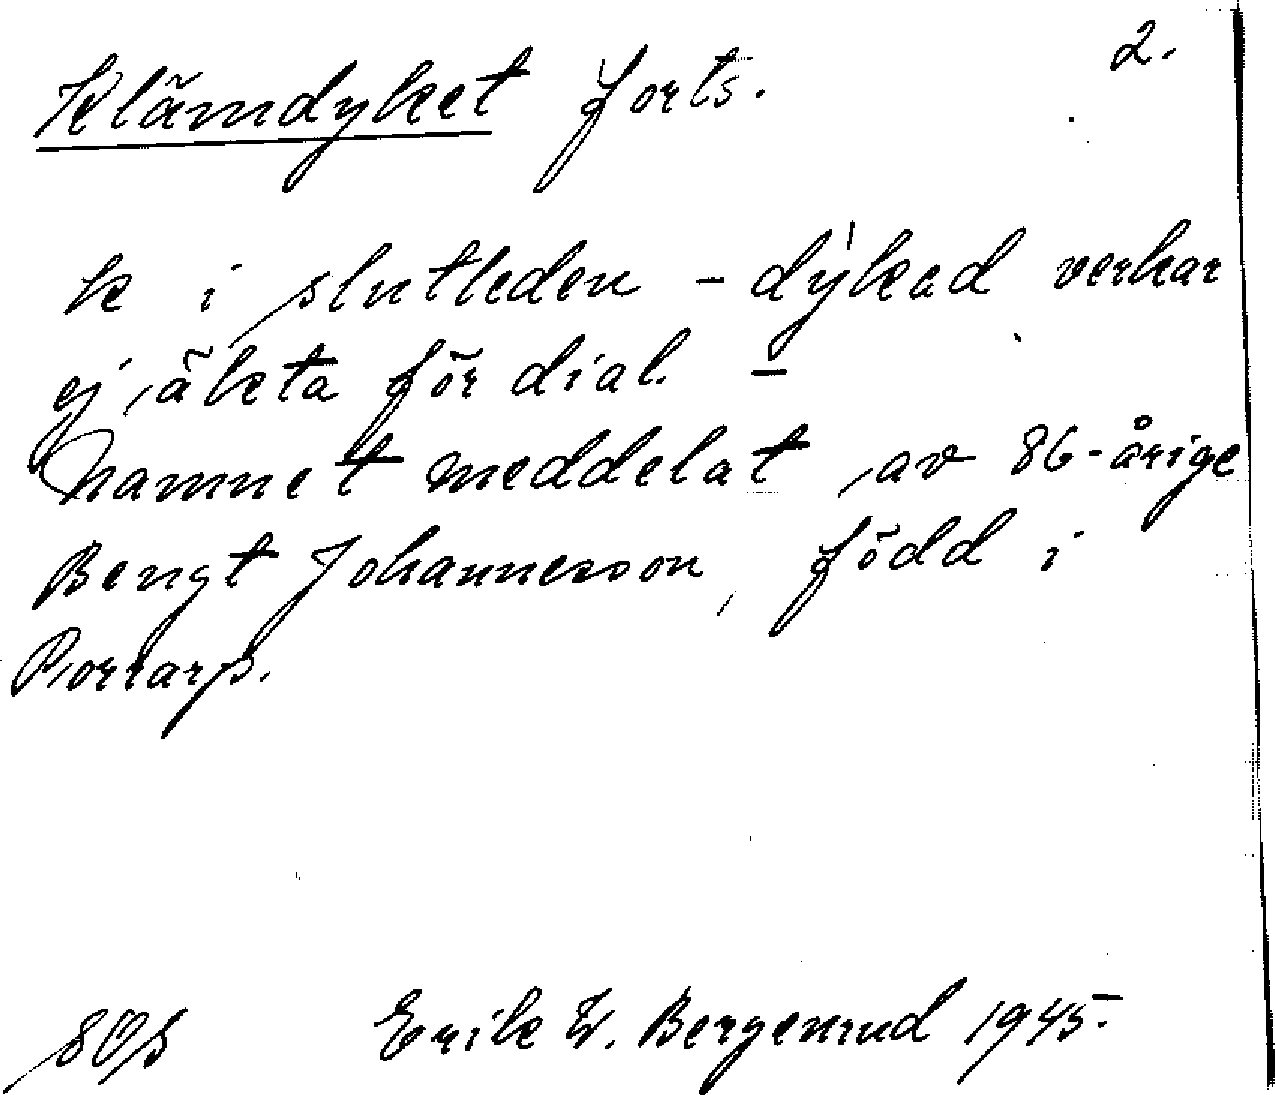 2.
Klämdyket forts.
k i slutleden - dýkad verkar
ej äkta för dial. –
Namnet meddelat av 86-årige
Bengt Johannesson, född i
Porrarp.
Erik W. Bergenrud 1945.